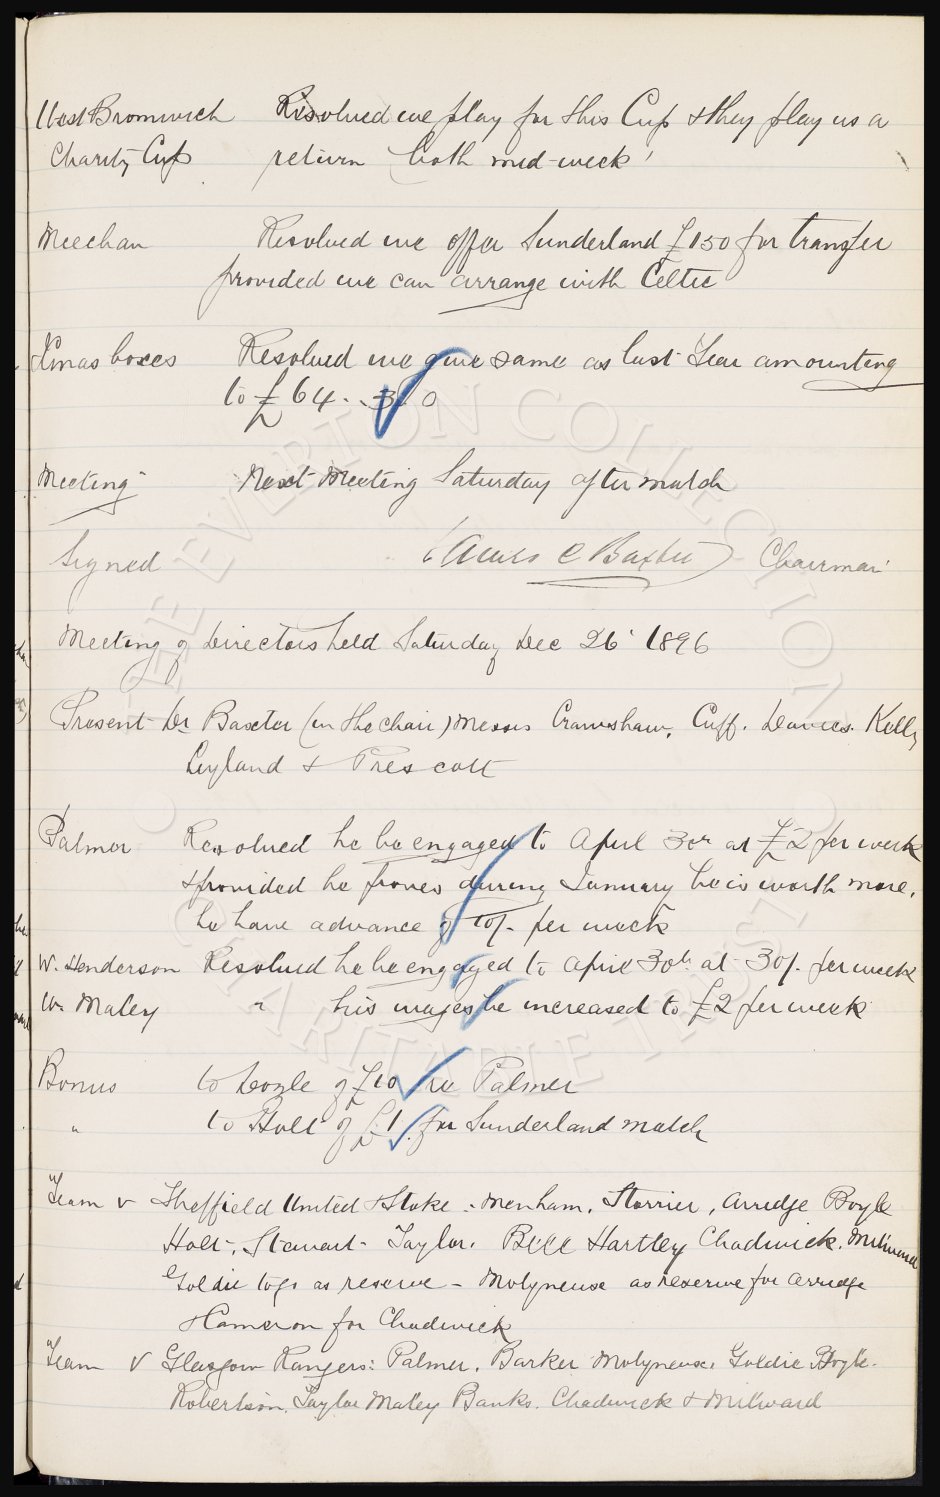 West Bromwich Resolved we play for this Cup & they play us a
Charity Cup return both mid-week
Meechan Resolved we offer Sunderland £150 for transfer
provided we can arrange with Celtic
Xmas boxes Resolved we give same as last Year amounting
to £64..3.0
Meeting Next Meeting Saturday after match
Signed James C Baxter Chairman
Meeting of Directors held Saturday Dec 26 1896
Present Dr Baxter (in the chair) Messrs Crawshaw, Cuff. Davies. Kelly
Leyland & Prescott
Palmer Resolved he be engaged to April 30th at £2 per week
& provided he proves during January he is worth more,
he have advance of 10/- per week
W. Henderson Resolved he be engaged to April 30th at 30/- per week
Wm Maley " his wages be increased to £2 per week
Bonus to Doyle of £10 re Palmer
" to Holt of £1. for Sunderland match
Team v Sheffield United & Stoke:- Menham, Storrier, Arridge Boyle
Holt, Stewart- Taylor, Bell Hartley Chadwick. Milward
Goldie to go as reserve - Molyneux as reserve for Arridge
& Cameron for Chadwick
Team V Glasgow Rangers: Palmer, Barker Molyneux, Goldie Boyle.
Robertson, Taylor Maley Banks. Chadwick & Milward
THE EVERTON COLLECTION
CHARITABLE TRUST